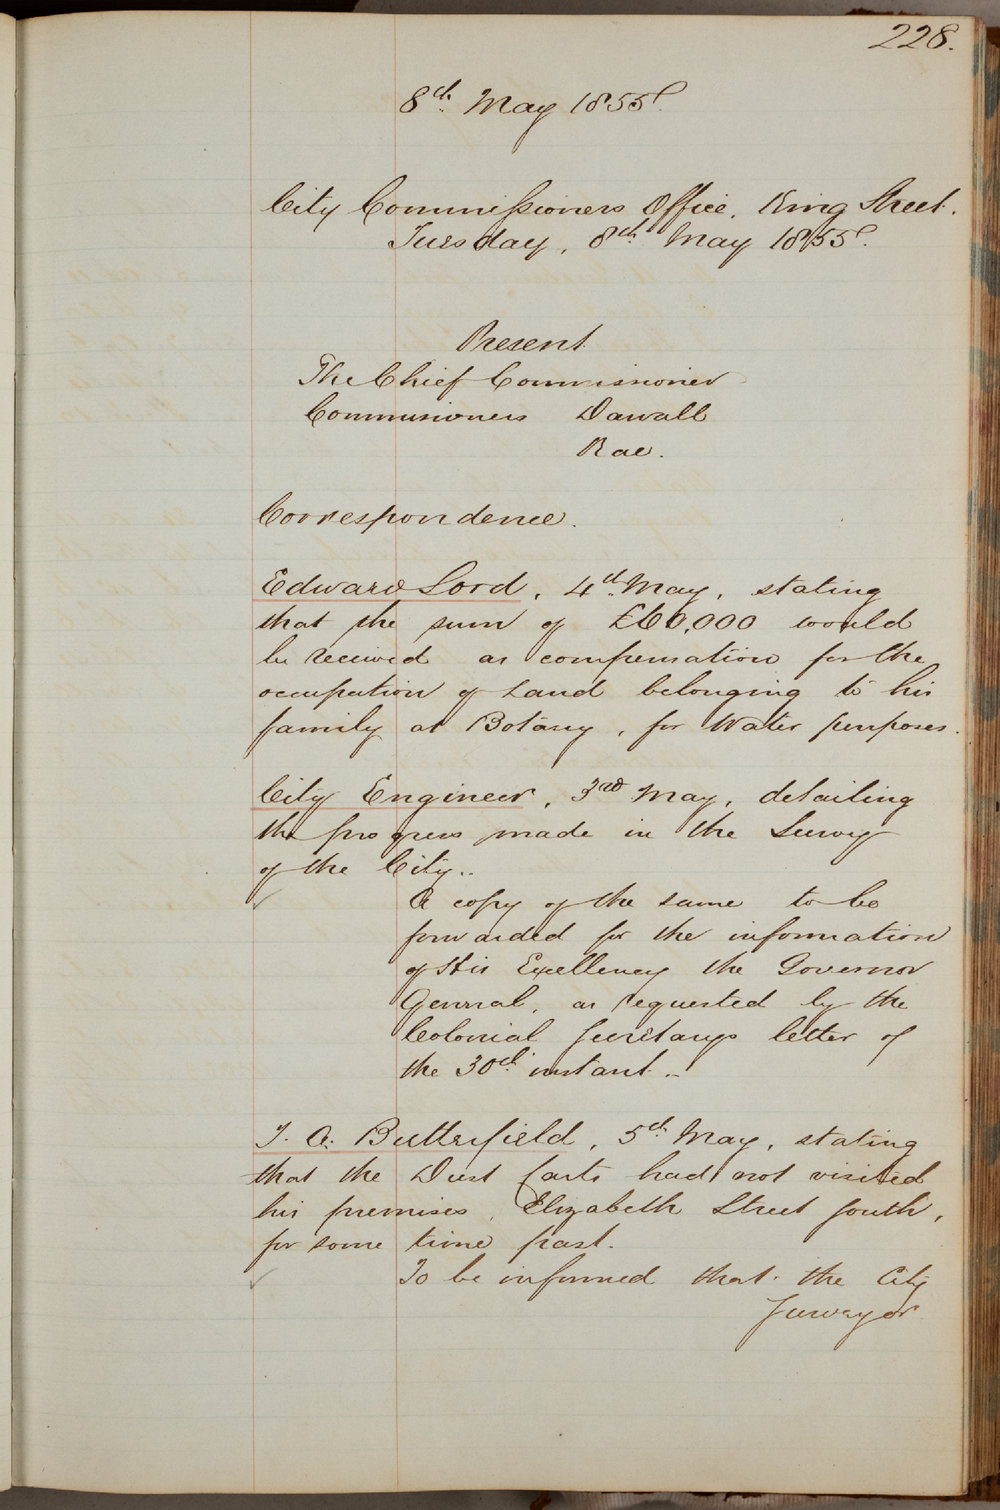 228.
8th May 1855.
City Commissioners Office, King Street.
Tuesday, 8th May 1855.
Present
The Chief Commissioner
Commissioners Darvall
Rae.
Correspondence.
Edward Lord, 4th May, stating
that the sum of £60,000 would
be received as compensation for the
occupation of Land belonging to his
family at Botany, for Water purposes.
City Engineer, 3rd May, detailing
the progress made in the Survey
of the City..
A copy of the same to be
forwarded for the information
of His Excellency the Governor
General, as requested by the
Colonial Secretarys letter of
the 30th instant.
T. A. Butterfield, 5th May, stating
that the Dust Carts had not visited
his premises, Elizabeth Street South,
for some time past.
To be informed that the City
Surveyor